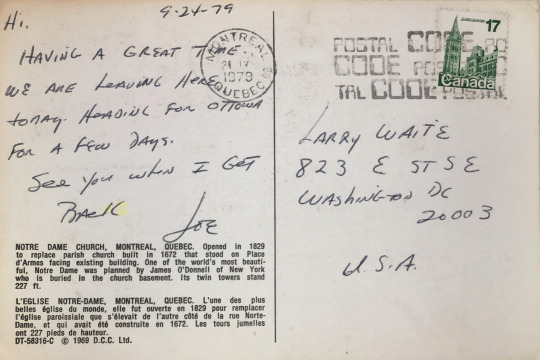 9-24-79
Hi,
HAVING A GREAT TIME.
WE ARE LEAVING HERE
TODAY. HEADING FOR OTTOWA
FOR A FEW DAYS.
SEE YOU WHEN I GET
BACK
JOE
NOTRE DAME CHURCH, MONTREAL, QUEBEC. Opened in 1829
to replace parish church built in 1672 that stood on Place
d'Armes facing existing building. One of the world's most beauti-
ful, Notre Dame was planned by James O'Donnell of New York
who is buried in the church basement. Its twin towers stand
227 ft.
L'EGLISE NOTRE-DAME, MONTREAL, QUEBEC. L'une des plus
belles église du monde, elle fut ouverte en 1829 pour remplacer
l'église paroissiale que s'élevait de l'autre côté de la rue Norte-
Dame, et qui avait été construite en 1672. Les tours jumelles
ont 227 pieds de hauteur.
DT-58316-C © 1969 D.C.C. Ltd.
MONTREAL
24 IX
1979
QUEBEC
POSTAL CODE PO
CODE POS
TAL CODE POSTAL
17
Canada
LARRY WAITE
823 E ST SE
WASHINGTON DC
20003
U.S.A.